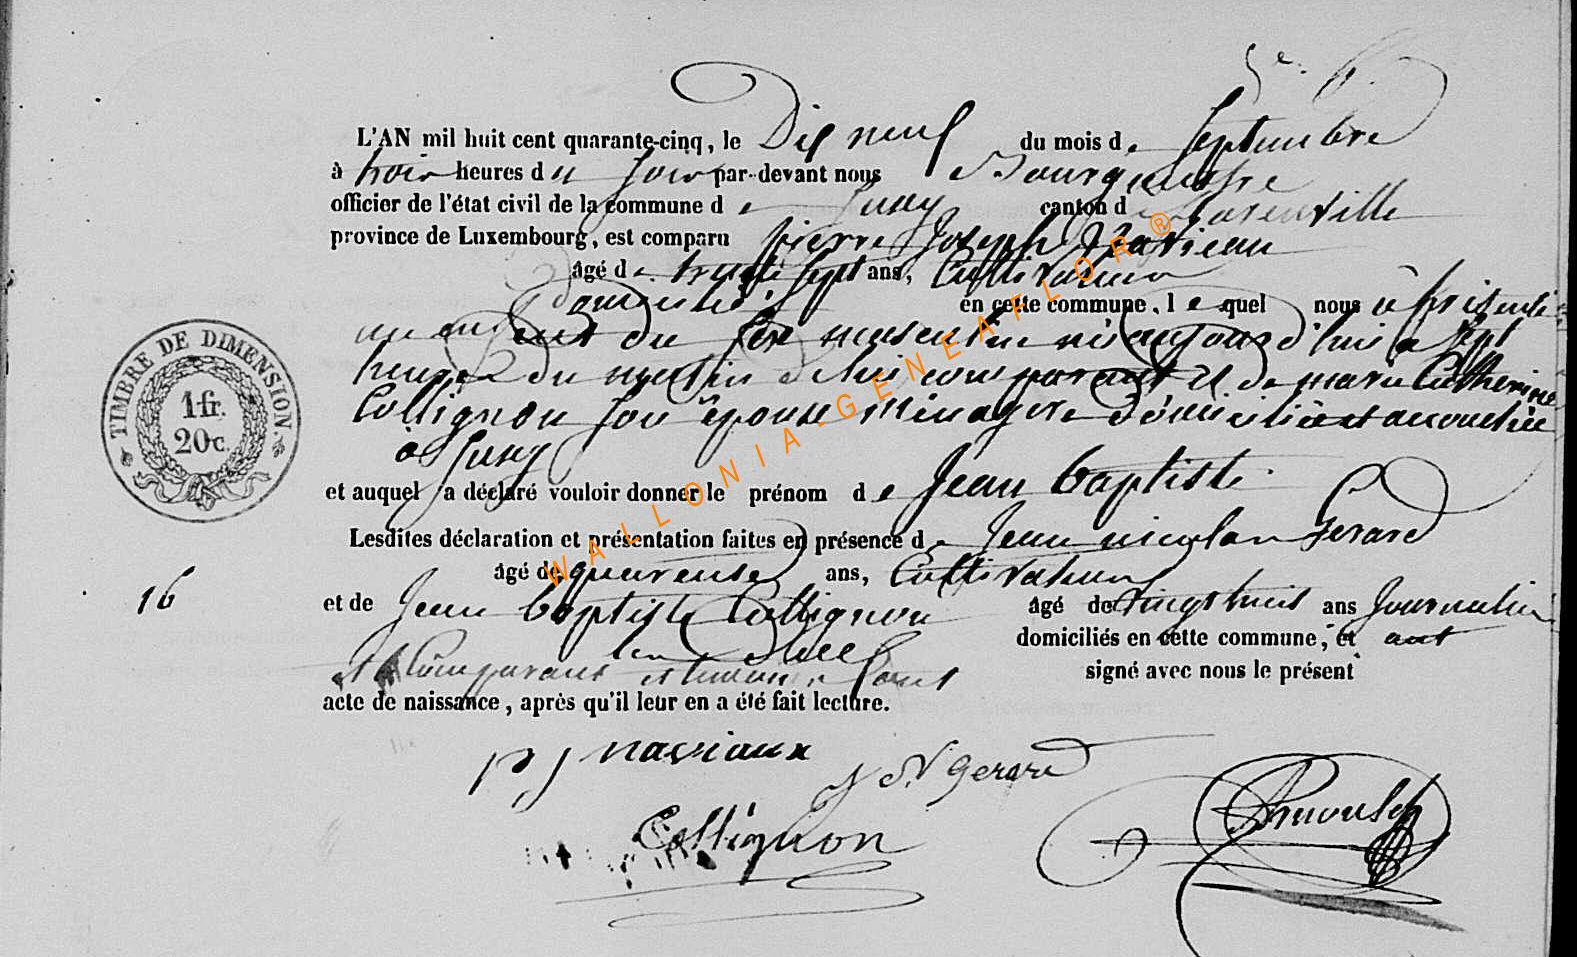 L'AN mil huit cent quarante-cinq, le Dix neuf du mois de Septembre
à trois heures du soir par-devant nous Bourguemestre
officier de l'état civil de la commune de Juny canton de
province de Luxembourg, est comparu pierre Joseph
âgé de trente sept ans, Cultivateur
domicilié en cette commune, lequel nous à présenté
un enfant du sexe masculin né aujourd'hui à sept
heures du matin de lui comparant et de marie Catherine
Collignon son épouse ménagère domiciliée et accouchée
à Juny
et auquel a déclaré vouloir donner le prénom de Jean baptiste
Lesdites déclaration et présentation faites en présence de Jean nicolas Gerard
âgé de quarente ans, Cultivateur
et de Jean baptiste Collignon âgé de vingt huit ans Journalier
domiciliés en cette commune, et ont
et le Comparant et témoins signé avec nous le présent
acte de naissance, après qu'il leur en a été fait lecture.
p j naviaux
J N Gerard
Collignon
TIMBRE DE DIMENSION.
1 fr.
20 c.
16
WALLONIA-GENEAFLOR®